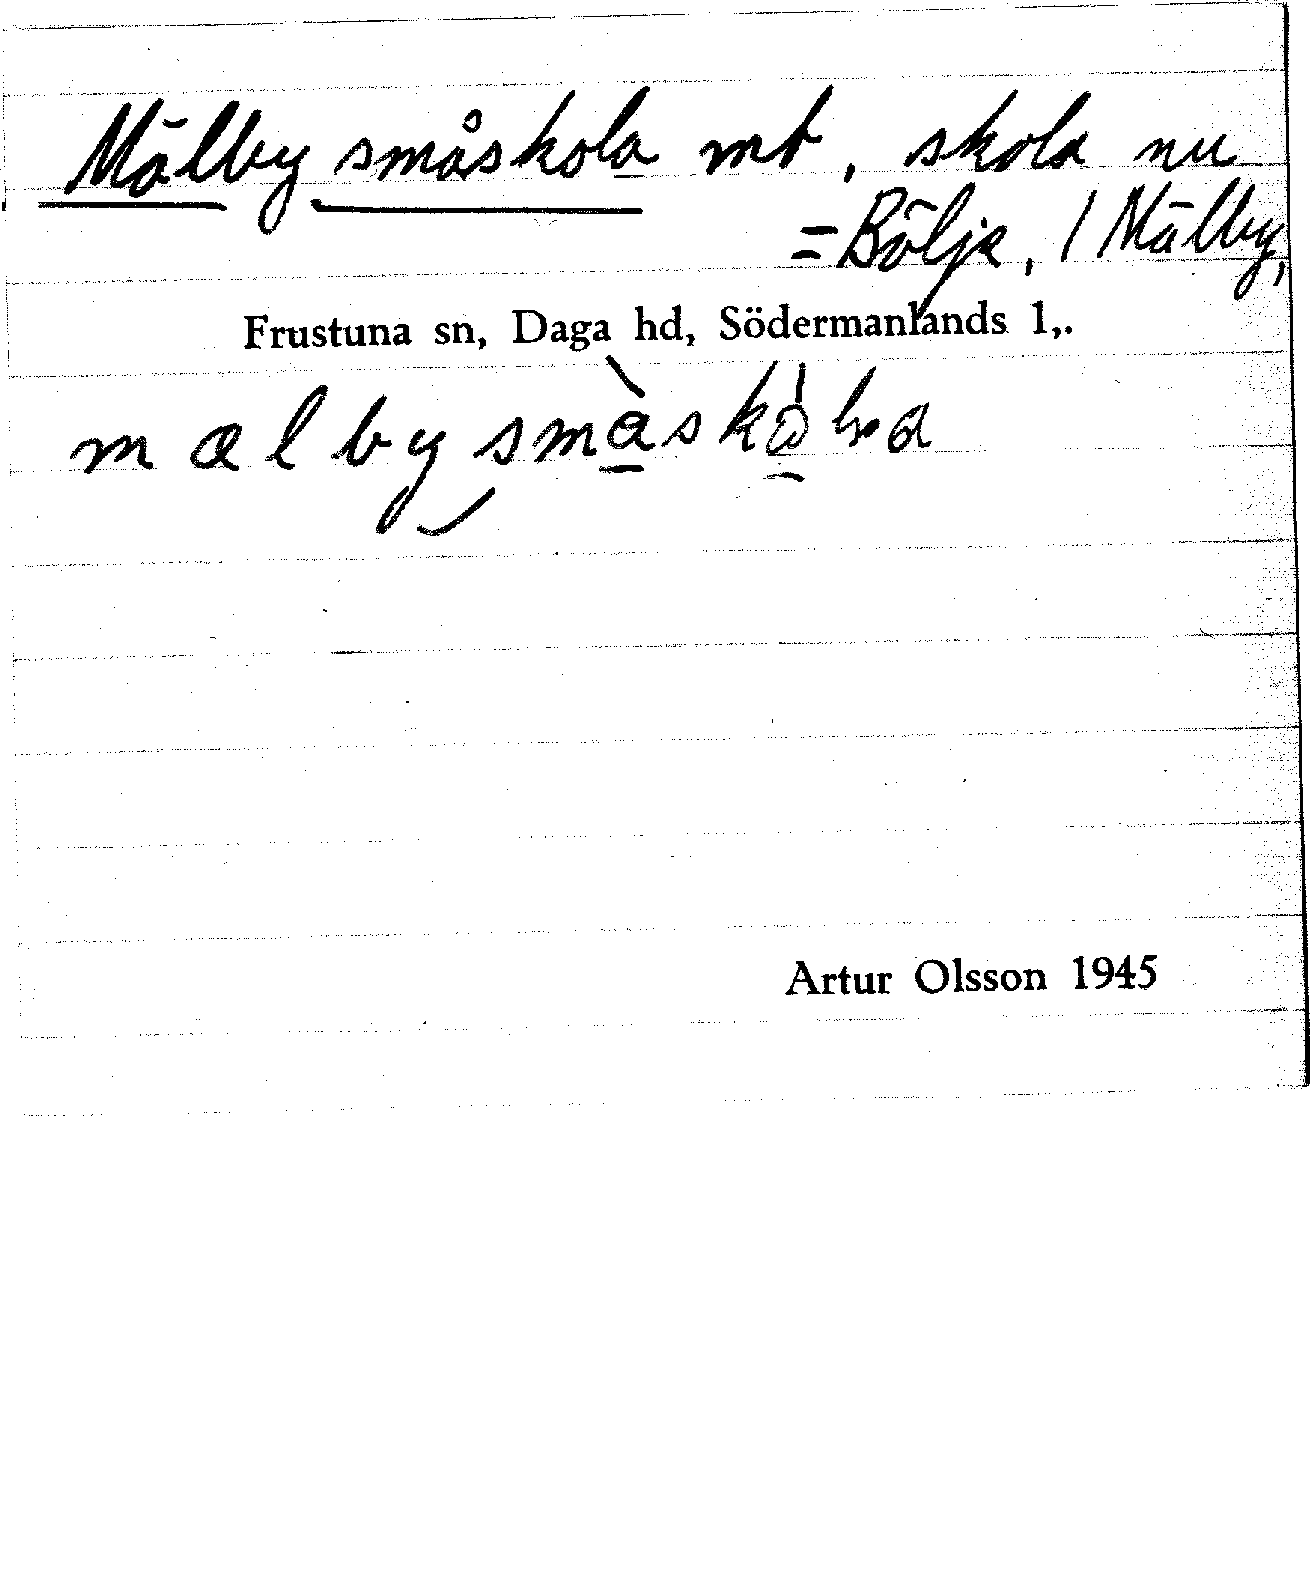 Mälby småskola mt, skola nu
= Bölja, / Mälby,
Frustuna sn, Daga hd, Södermanlands l,.
mælby småskola
Artur Olsson 1945